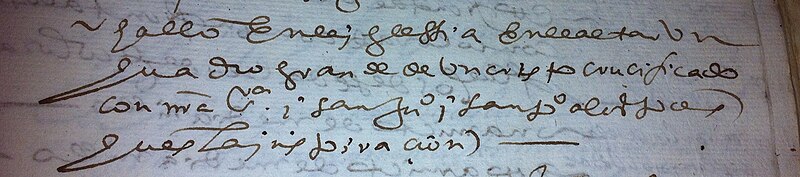 ~ hallo En la yglessia En el altar Un
quadro grande de Un cristo crucificado
con nra sra i san Juº i san pº
ques la ynspiración